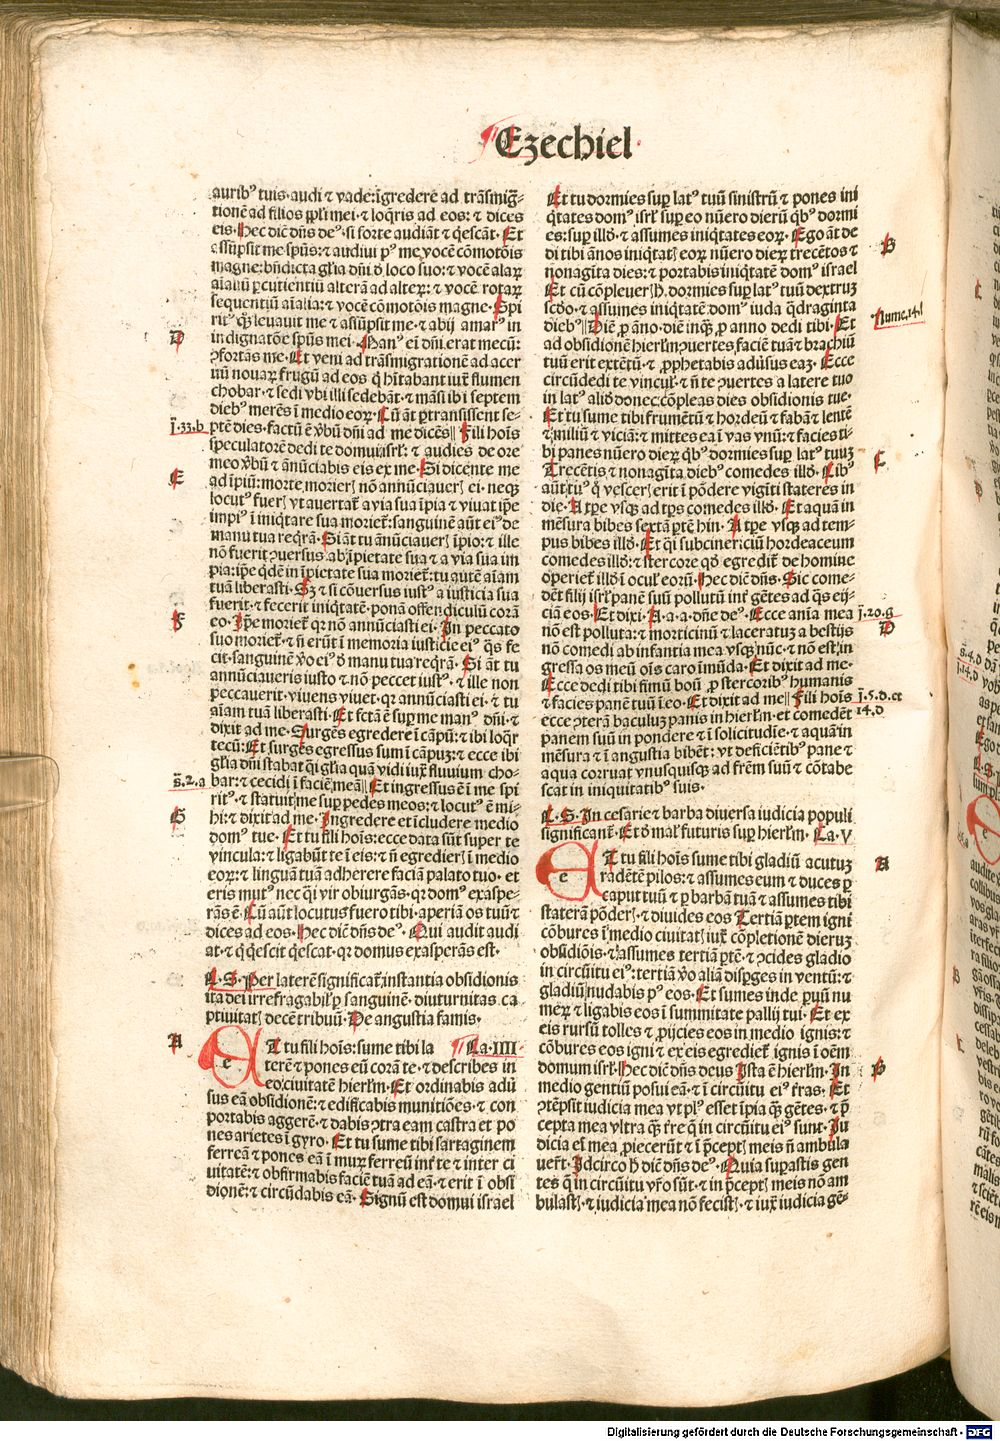 Ezechiel·
auribꝰ tuis·audi ⁊ vade:īgredere ad trāsmig̅-
tionē ad filios ppl̓i mei·⁊ loq̄ris ad eos:⁊ dices
eis·Hec dic̄ dn̄s deꝰ·si forte audiāt ⁊ q̇escāt·Et
assūpsit me spūs:⁊ audiui pꝰ me vocē cōmotōis
magne:bn̄dicta gl̓ia dn̄i ð loco suo:⁊ vocē alaꝝ
aīaliū ꝑcutientiū alterā ad alterā:⁊ vocē rotaꝝ
sequentiū aīalia:⁊ vocē cōmotōis magne·Spi
ritꝰ q̄ꝫ leuauit me ⁊ assūpsit me·⁊ abij amarꝰ in
indignatōe spūs mei·Manꝰ em̄ dn̄i erat mecū:
ꝯfortās me·Et veni ad trāsmigrationē ad acer
uū nouaꝝ frugū ad eos q̇ hītabant iuxͭ flumen
chobar·⁊ sedi vbi illi sedebāt·⁊ māsi ibi septem
diebꝰ merēs ī medio eoꝝ·Cū āt ꝑtransissent se-
ī·33·b ptē dies·factū ē v̄bū dn̄i ad me dicēs‖Fili hoīs
speculatorē dedi te domui isrl̓:⁊ audies de ore
meo v̄bū ⁊ ānūciabis eis ex me·Si dicente me
E ad īpiū:morte morierꝭ nō annūciauerꝭ ei·neqꝫ
locutꝰ fuerꝭ vt auertatͬ a via sua īpia ⁊ viuat ip̄e
impiꝰ ī iniq̇tate sua morietͬ:sanguinē aūt eiꝰ de
manu tua req̇rā·Si āt tu ānūciauerꝭ īpio:⁊ ille
nō fuerit ꝯuersus ab īpietate sua ⁊ a via sua im
pia:ip̄e q̇dē in īpietate sua morietͬ:tu autē aīam
tuā liberasti·Sꝫ ⁊ si cōuersus iustꝰ a iusticia sua
fuerit·⁊ fecerit iniq̇tatē·ponā offendiculū corā
F eo·Ip̄e morietͬ qꝛ nō annūciasti ei·In peccato
suo morietͬ·⁊ n̄ erūt ī memoria iusticie eiꝰ q̄s fe
cit·sanguinē v̄o eiꝰ ð manu tua req̇rā·Si āt tu
annūciaueris iusto ⁊ nō peccet iustꝰ·⁊ ille non
peccauerit·viuens viuet·qꝛ annūciasti ei·⁊ tu
aīam tuā liberasti·Et fctā ē suꝑ me manꝰ dn̄i·⁊
dixit ad me·Surgēs egredere ī cāpū:⁊ ibi loq̇r
tecū:Et surgēs egressus sum ī cāpuꝫ:⁊ ecce ibi
gl̓ia dn̄i stabat q̇si gl̓ia quā vidi iuxͭ fluuium cho-
s̄·2·a bar:⁊ cecidi ī faciē meā‖Et ingressus ē ī me spi
ritꝰ·⁊ statuit me suꝑ pedes meos:⁊ locutꝰ ē mi-
G hi:⁊ dixit ad me·Ingredere ⁊ īcludere medio
domꝰ tue·Et tu fili hoīs:ecce data sūt super te
vincula:⁊ ligabūt te ī eis:⁊ n̄ egredierꝭ ī medio
eoꝝ:⁊ linguā tuā adherere faciā palato tuo·et
eris mutꝰ nec q̇si vir obiurgās·qꝛ domꝰ exaspe-
rās ē·Cū aūt locutus fuero tibi·aperiā os tuū:⁊
dices ad eos·Hec dic̄ dn̄s deꝰ·Qui audit audi
at·⁊ q̇ q̇escit q̇escat·qꝛ domus exasperās est·
C·S·Per laterē significatͬ instantia obsidionis
ita dei irrefragabil̓ ꝑ sanguinē·diuturnitas ca
ptiuitatꝭ decē tribuū·De angustia famis·
A Et tu fili hoīs:sume tibi la Ca·IIII·
terē ⁊ pones eū corā te·⁊ describes in
eo ciuitatē hierl̓m·Et ordinabis adū
sus eā obsidionē:⁊ edificabis munitiōes·⁊ con
portabis aggerē·⁊ dabis ꝯtra eam castra et po
nes arietes ī gyro·Et tu sume tibi sartaginem
ferreā ⁊ pones eā ī muꝝ ferreū inͭ te ⁊ inter ci
uitatē:⁊ obfirmabis faciē tuā ad eā·⁊ erit ī obsi
dionē:⁊ circūdabis eā·Signū est domui israel
Et tu dormies suꝑ latꝰ tuū sinistrū ⁊ pones ini
q̇tates domꝰ isrl̓ suꝑ eo nūero dierū q̇bꝰ dormi
es:suꝑ illð·⁊ assumes iniq̇tates eoꝝ·Ego āt de
B di tibi ānos iniq̇tatꝭ eoꝝ nūero dieꝝ trecētos ⁊
nonagīta dies:⁊ portabis iniq̇tatē domꝰ israel
Et cū cōpleuerꝭ h̄·dormies suꝑ latꝰ tuū dextruꝫ
scðo·⁊ assumes iniq̇tatē domꝰ iuda q̄draginta
Nume·14·f diebꝰ‖Diē ꝓ āno·diē inq̄ꝫ ꝓ anno dedi tibi·Et
ad obsidionē hierl̓m ꝯuertes faciē tuā·⁊ brachiū
tuū erit extētū·⁊ ꝓphetabis adūsus eaꝫ·Ecce
circūdedi te vinculꝭ·⁊ n̄ te ꝯuertes a latere tuo
in latꝰ alið·donec cōpleas dies obsidionis tue·
Et tu sume tibi frumētū ⁊ hordeū ⁊ fabā ⁊ lentē
⁊ miliū ⁊ viciā:⁊ mittes ea ī vas vnū:⁊ facies ti-
bi panes nūero dieꝝ q̇bꝰ dormies suꝑ latꝰ tuuꝫ
C Trecētis ⁊ nonagīta diebꝰ comedes illð·Cibꝰ
aūt tuꝰ q̇ vescerꝭ erit ī pōdere vigīti stateres in
die·A tꝑe vsqꝫ ad tp̄s comedes illð·Et aquā in
mēsura bibes sextā ꝑtē hin·A tꝑe vsqꝫ ad tem-
pus bibes illð·Et q̇si subcinericiū hordeaceum
comedes illð:⁊ stercore qð egreditͬ de homine
operies illð ī oculꝭ eorū·Hec dic̄ dn̄s·Sic come-
dēt filij isrl̓ panē suū pollutū inͭ gētes ad q̄s eij-
ī·20·g ciā eos·Et dixi·A·a·a·dn̄e deꝰ·Ecce aīa mea
D nō est polluta:⁊ morticinū ⁊ laceratuꝫ a bestijs
nō comedi ab infantia mea vsqꝫ nūc·⁊ nō est in
gressa os meū oīs caro imūda·Et dixit ad me·
Ecce dedi tibi fimū boū ꝓ stercoribꝰ humanis
ī·5·d·et ⁊ facies panē tuū ī eo·Et dixit ad me‖Fili hoīs
14·d ecce ꝯterā baculuꝫ panis in hierl̓m·et comedēt
panem suū in pondere ⁊ ī solicitudīe·⁊ aquā in
mēsura ⁊ ī angustia bibēt:vt deficiētibꝰ pane ⁊
aqua corruat vnusquisqꝫ ad fr̄em suū·⁊ cōtabe
scat in iniquitatibꝰ suis·
C·S·In cesarie ⁊ barba diuersa iudicia populi
significantͬ·Et ð mal̓ futuris suꝑ hierl̓m· Ca·V
A Et tu fili hoīs sume tibi gladiū acutuꝫ
radētē pilos:⁊ assumes eum ⁊ duces ꝑ
caput tuū ⁊ ꝑ barbā tuā ⁊ assumes tibi
staterā pōderꝭ·⁊ diuides eos Tertiā ꝑtem igni
cōbures ī medio ciuitatꝭ iuxͭ cōpletionē dieruꝫ
obsidiōis·⁊ assumes tertiā ꝑtē·⁊ ꝯcides gladio
in circūitu eiꝰ:tertiā v̄o aliā disꝑges in ventū:⁊
gladiū nudabis pꝰ eos·Et sumes inde ꝑuū nu
meꝝ ⁊ ligabis eos ī summitate pallij tui·Et ex
eis rursū tolles ⁊ ꝓijcies eos in medio ignis:⁊
cōbures eos igni·⁊ ex eis egredietͬ ignis ī oēm
B domum isrl̓·Hec dic̄ dn̄s deus Ista ē hierl̓m·In
medio gentiū posui eā·⁊ ī circūitu eiꝰ t̄ras·Et
ꝯtēpsit iudicia mea vt plꝰ esset īpia q̄ꝫ gētes·⁊ p̄
cepta mea vltra q̄ꝫ t̄re q̄ in circūitu eiꝰ sunt·Iu
dicia em̄ mea ꝓiecerūt ⁊ ī p̄ceptꝭ meis n̄ ambula
uerͭt·Idcirco h̄ dic̄ dn̄s deꝰ·Quia suꝑastis gen
tes q̄ in circūitu vr̄o sūt·⁊ in p̄ceptꝭ meis nō am
bulastꝭ·⁊ iudicia mea nō fecistꝭ·⁊ iuxͭ iudicia gē-
Digitalisierung gefördert durch die Deutsche Forschungsgemeinschaft - DFG